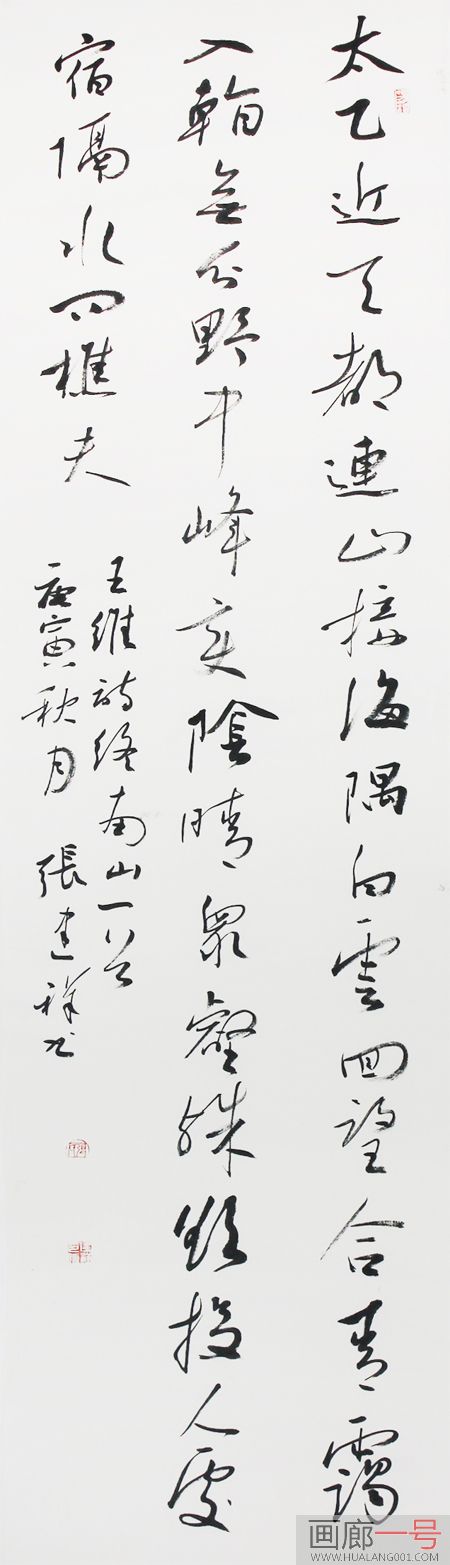 太乙近天都連山接海隅白雲回望合青靄
入看無分野中峰變陰晴眾壑殊欲投人處
宿隔水問樵夫
王維詩終南山一首
庚寅秋月 張建祥書
画廊一号
WWW.HUALANG001.COM